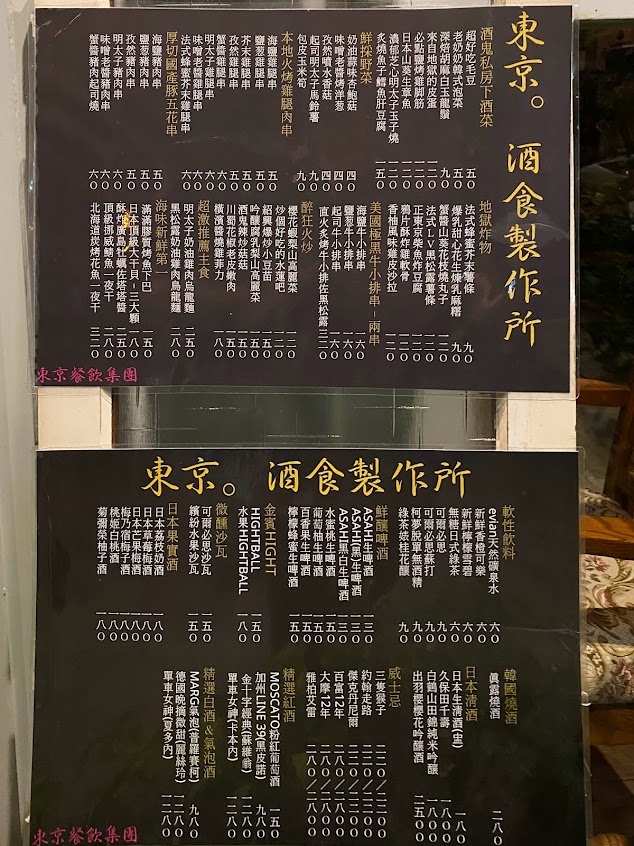 東京。酒食製作所
酒鬼私房下酒菜
超好吃毛豆 五〇
老奶奶韓式泡菜 五〇
深焙胡麻白玉龍鬚 九〇
來自地獄的皮蛋
必點鹽烤雞脚筋 一二〇
日本山葵生章魚 一二〇
濃郁芝心明太子玉子燒 一二〇
炙燒魚子鱈魚肝豆腐 一五〇
鮮採野菜
奶油蒜味杏鮑菇 四〇
味噌老醬烤洋葱 四〇
孜然噴水香菇 四〇
起司明太子馬鈴薯 九〇
包皮玉米筍 九〇
本地火烤雞腿肉串
海鹽雞腿串 五〇
鹽葱雞腿串 五〇
孜然雞腿串 五〇
芥末雞腿串 五〇
蟹醬雞腿串 六〇
明太子雞腿串 六〇
味噌老醬雞腿串 六〇
法式蜂蜜芥末雞腿串 六〇
厚切國產豚五花串
海鹽豬肉串 五〇
鹽葱豬肉串 五〇
孜然豬肉串 五〇
明太子豬肉串 六〇
味噌老醬豬肉串 六〇
蟹醬豬肉起司燒 六〇
地獄炸物
法式蜂蜜芥末薯條 九〇
爆乳甜心花生磱乳麻糬 九〇
蟹醬山葵花枝燒丸子 一二〇
法式LV黑松露薯條 一二〇
正東京柴魚炸豆腐 一二〇
鴉片酥炸雞軟骨 一二〇
香柚風味雞皮沙拉 一二〇
美國極黑牛小排串－兩串
海鹽牛小排串 一六〇
鹽葱牛小排串 一六〇
起司牛小排串 一六〇
直火炙烤牛小排佐黑松露 三二〇
醉狂火炒
櫻花蝦梨山高麗菜 一二〇
炒個好吃的水蓮吧 一二〇
紹興爆炒小豆苗 一五〇
吟釀腐乳梨山高麗菜 一五〇
酒鬼辣炒菇菇 一五〇
川蜀花椒老皮嫩肉 一五〇
橫濱蟹醬燒雞菲力 一八〇
超激推薦主食
明太子奶油雞肉烏龍麵 二五〇
黑松露奶油雞肉烏龍麵 二八〇
海味新鮮第一
滿滿膠質烤魚下巴 一五〇
日本頂級大干貝－三大顆 一八〇
酥炸廣島牡蠣佐塔塔醬 二五〇
頂級挪威鯖魚一夜干 二八〇
北海道炭烤花魚一夜干 三二〇
東京餐飲集團
東京。酒食製作所
軟性飲料
evian天然礦泉水 六〇
新鮮香橙可樂 六〇
新鮮檸檬雪碧 六〇
無糖日式綠茶 六〇
可爾必思 九〇
可爾必思蘇打 九〇
柯夢脫單無酒精 九〇
綠茶婊桂花釀 九〇
鮮釀啤酒
ASAHI生啤酒 一三〇
ASAHI(黑)生啤酒 一三〇
ASAHI(黑白)生啤酒 一三〇
水蜜桃生啤酒 一五〇
葡萄柚生啤酒 一五〇
百香果生啤酒 一五〇
檸檬蜂蜜生啤酒 一五〇
金賓HIGHT
HIGHTBALL 一五〇
水果HIGHTBALL 一八〇
微醺沙瓦
可爾必思沙瓦 一五〇
繽紛水果沙瓦 一五〇
日本果實酒
日本荔枝奶酒 一八〇
日本草莓梅酒 一八〇
日本芒果梅酒 一八〇
梅乃宿梅子酒 一八〇
桃姬白桃酒 一八〇
菊彌榮柚子酒 一八〇
韓國燒酒
真露燒酒 二八〇
日本清酒
日本生清酒(壺) 一八〇
久保田千壽 一八〇〇
白鶴山田錦純米吟釀 一八〇〇
出羽櫻櫻花吟釀酒 二五〇〇
威士忌
三隻猴子
約翰走路
傑克丹尼爾
百富12年
大摩12年
雅柏艾雷
精選紅酒
MOSCATO粉紅葡萄酒 一五〇
加州LINE 39(黑皮諾) 九八〇
金十字經典(蘇維翁) 一二八〇
單車女神(卡本內) 一二八〇
精選白酒&氣泡酒
MARGI氣泡(普羅賽柯) 九八〇
德國晚摘微甜(麗絲玲) 一二八〇
單車女神(夏多內) 一二八〇
東京餐飲集團